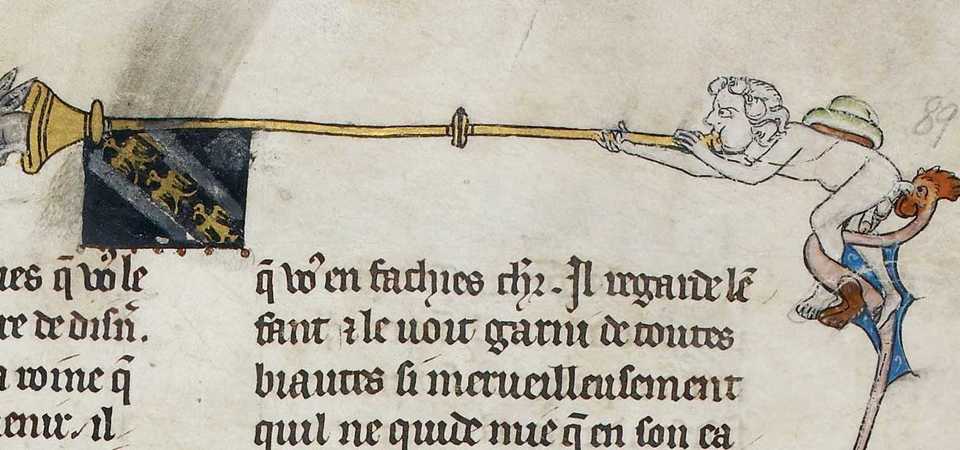 89
ues q̄ vo᷒ le
re de disn̄.
a roine q̄
enir. il
q̄ vo᷒ en fachies chr̄. Il regarde lē
fant ⁊ le uoit garni de toutes
biautes si merueilleusement
quil ne quide mie q̄ en son ea